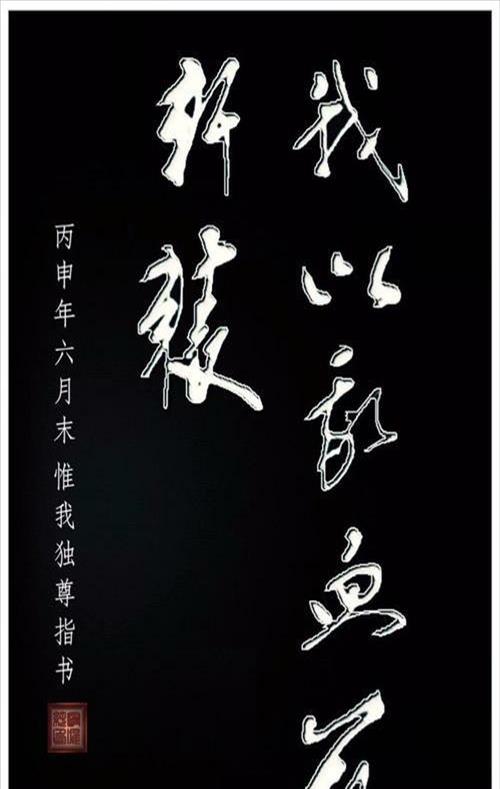 我以我血荐
轩辕
丙申年六月末惟我独尊指书